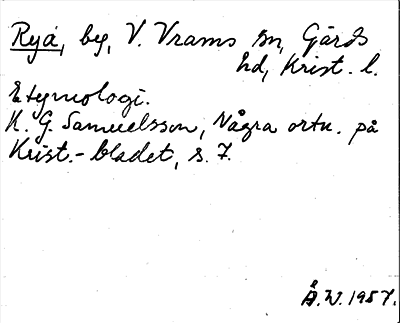 Ryá, by, V. Vrams sn, Gärds
hd, Krist. l.
Etymologi.
K. G. Samuelsson, Några ortn. på
Krist.-bladet, s. 7.
Å.W. 1957.